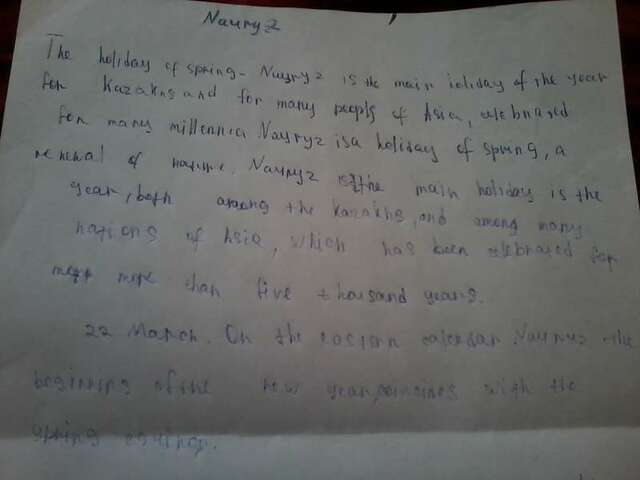 Nauryz
The holiday of spring - Nauryz is the main ioliday of the year
for Kazakhs and for many people of Asia, celebnated
for many millennia Nauryz is a holiday of spring, a
renewal of nature. Nauryz is the main holiday is the
year, both among the Kazakhs, and among many
nations of Asia, which has been celebnated for
more than five thousand years.
22 March. On the eastern calendar Nauryz - the
beginning of the new year, coincides with the
spring